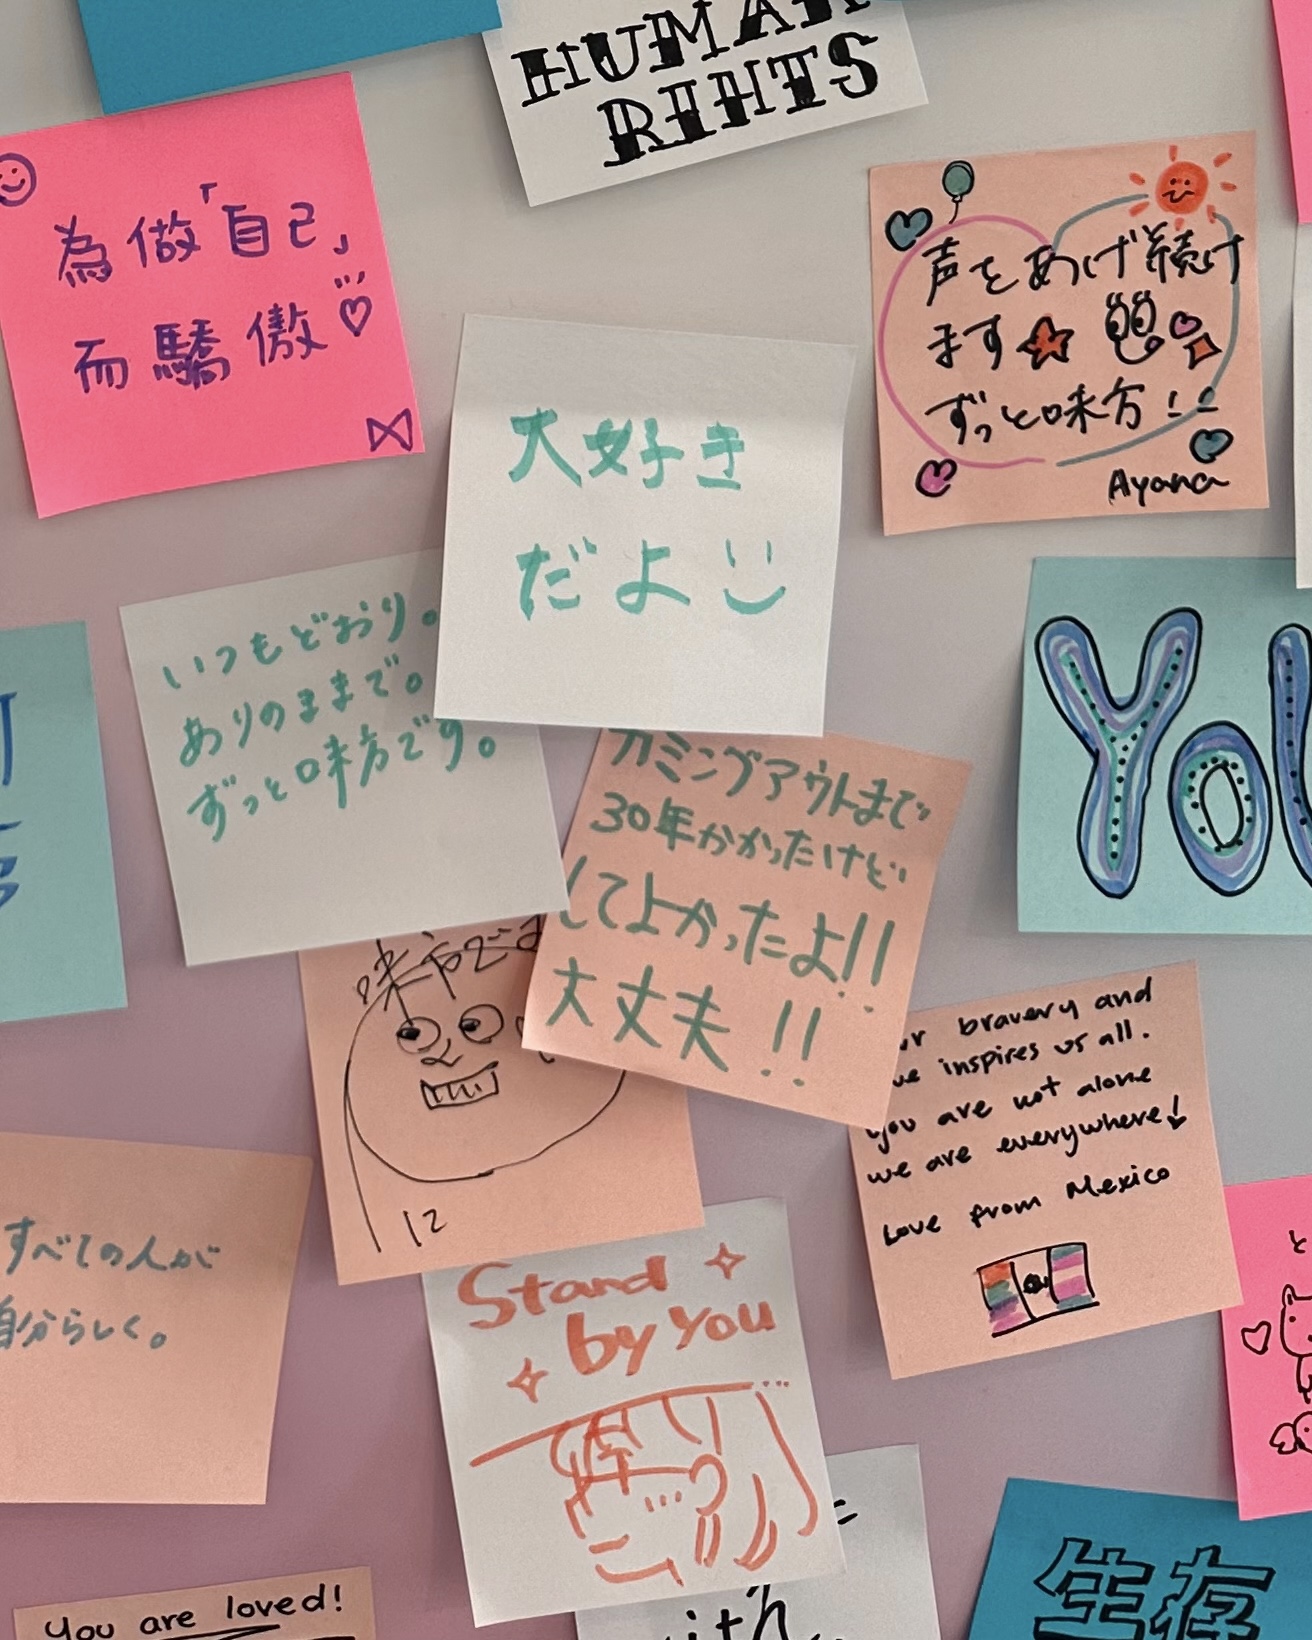 HUMAN
RIHTS
為做「自己」
而驕傲
声をあげ続け
ます
ずっと味方!!
Ayana
大好き
だよ
いつもどおり。
ありのままで。
ずっと味方です。
YOU
カミングアウトまで
30年かかったけど
してよかったよ!!
大丈夫!!
味方だよ
12
bravery and
inspires us all.
you are not alone
we are everywhere!
Love from Mexico
すべての人が
自分らしく。
と
Stand
by you
You are loved!
with
生存